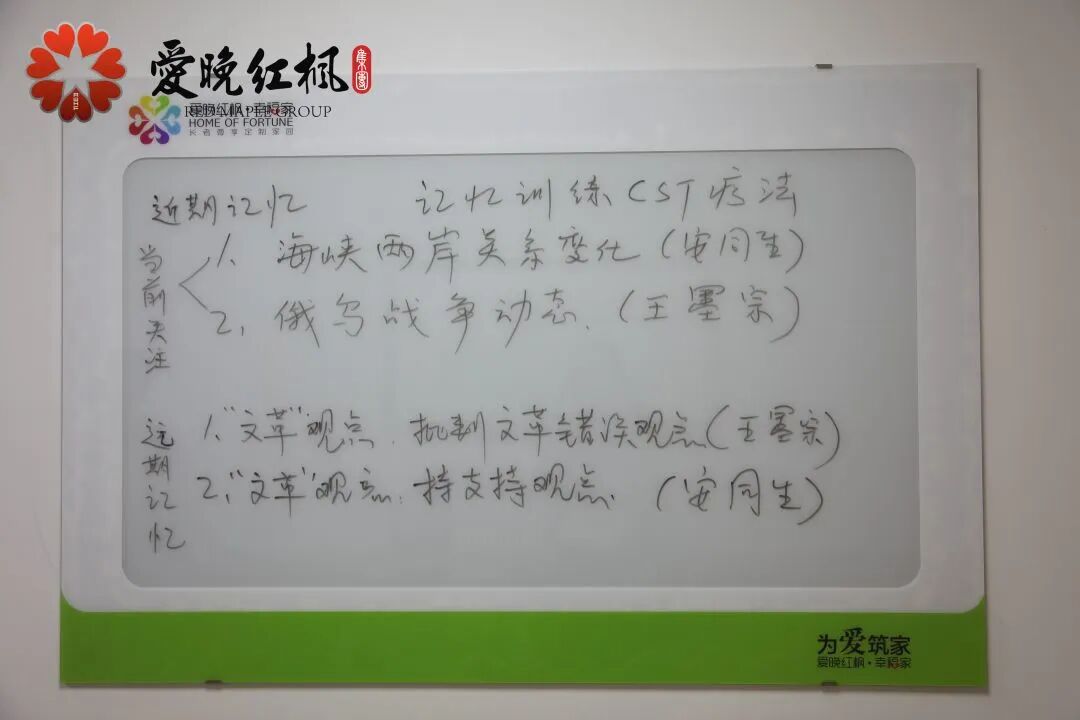 爱晚红枫
集团
RED MAPLE GROUP
爱晚红枫·幸福家
HOME OF FORTUNE
长者尊享定制家园
近期记忆 记忆训练CST疗法
当前关注
1. 海峡两岸关系变化(安同生)
2. 俄乌战争动态.(王墨宗)
远期记忆
1."文革"观点.批判文革错误观点(王墨宗)
2."文革"观点.持支持观点.(安同生)
为爱筑家
爱晚红枫·幸福家